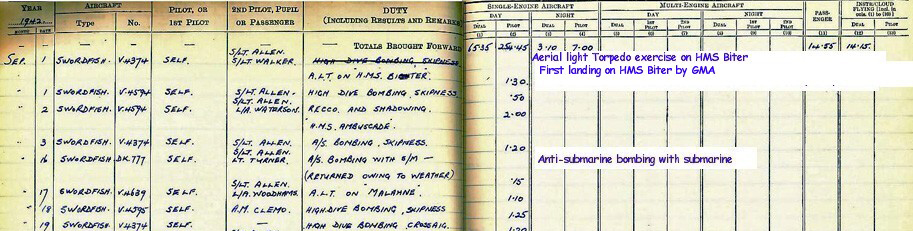 YEAR AIRCRAFT PILOT, OR 2ND PILOT, PUPIL DUTY SINGLE-ENGINE AIRCRAFT MULTI-ENGINE AIRCRAFT PASS-ENGER INSTR/CLOUD FLYING [Incl. in cols. (1) to (10)]
1942. Type No. 1ST PILOT OR PASSENGER (INCLUDING RESULTS AND REMARKS) DAY NIGHT DAY NIGHT
MONTH DATE DUAL PILOT DUAL PILOT DUAL 1ST PILOT 2ND PILOT DUAL 1ST PILOT 2ND PILOT DUAL PILOT
(1) (2) (3) (4) (5) (6) (7) (8) (9) (10) (11) (12) (13)
— — — — — — TOTALS BROUGHT FORWARD 65.35 254.45 3.10 7.00 14.55 14.15.
SEP. 1 SWORDFISH. V4374 SELF. S/LT. ALLEN. S/LT WALKER. HIGH DIVE BOMBING SKIPNESS
Aerial light Torpedo exercise on HMS Biter
First landing on HMS Biter by GMA
A.L.T. ON H.M.S. BITER. 1.30
" 1 SWORDFISH. V.4594 SELF. S/LT. ALLEN. HIGH DIVE BOMBING, SKIPNESS. .50
" 2 SWORDFISH. V.4594 SELF. S/LT. ALLEN. L/A. WATERSON. RECCO. AND SHADOWING. 2.00
H.M.S. AMBUSCADE.
" 3 SWORDFISH. V4374 SELF. S/LT. ALLEN. A/S. BOMBING, SKIPNESS. 1.20
" 16 SWORDFISH. DK.777 SELF. S/LT. ALLEN. LT. TURNER. A/S. BOMBING WITH S/M —
Anti-submarine bombing with submarine
(RETURNED OWING TO WEATHER) .15
" 17 SWORDFISH. V.4639 SELF. S/LT. ALLEN. L/A. WOODHAMS. A.L.T. ON "MALAHNE". 1.10
" 18 SWORDFISH V4595 SELF. A.M. CLEMO. HIGH DIVE BOMBING, SKIPNESS 1.25
19 SWORDFISH. V4374 SELF. — HIGH DIVE BOMBING CROSSAIG.